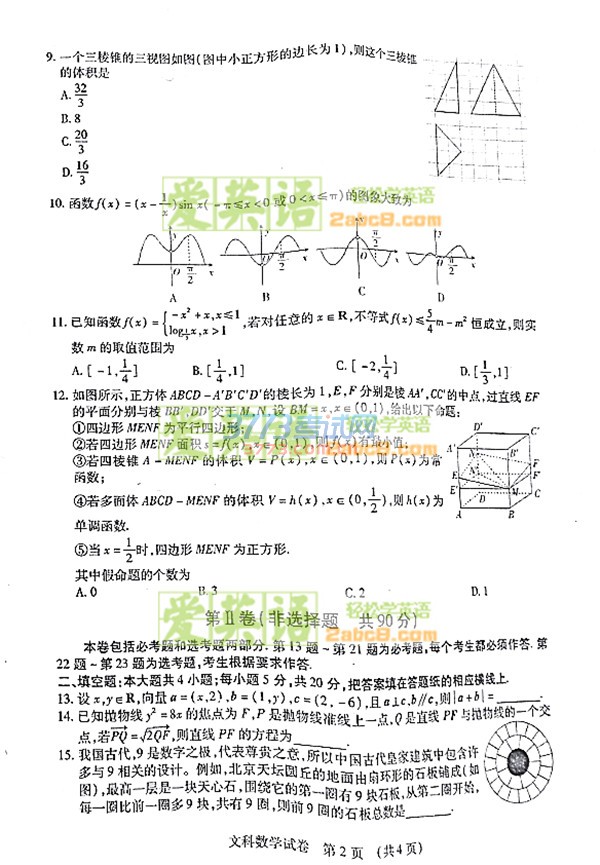 9. 一个三棱锥的三视图如图(图中小正方形的边长为1),则这个三棱锥
的体积是
A. 32/3
B. 8
C. 20/3
D. 16/3
爱英语
轻松学英语
2abc8.com
10. 函数f(x)=(x-1/x)sin x(-π≤x<0或0<x≤π)的图象大致为
y
π/2
O
x
y
π/2
O
x
y
π/2
O
x
y
π/2
O
x
A
B
C
D
11. 已知函数f(x)={-x²+x,x≤1
log_{1/3}x,x>1
,若对任意的x∈R,不等式f(x)≤5/4m-m²恒成立,则实
数m的取值范围为
A. [-1,1/4]
B. [1/4,1]
C. [-2,1/4]
D. [1/3,1]
12. 如图所示,正方体ABCD-A'B'C'D'的棱长为1,E,F分别是棱AA',CC'的中点,过直线EF
的平面分别与棱BB',DD'交于M,N.设BM=x,x∈(0,1),给出以下命题:
①四边形MENF为平行四边形;
②若四边形MENF面积s=f(x),x∈(0,1),则f(x)有最小值;
③若四棱锥A-MENF的体积V=P(x),x∈(0,1),则P(x)为常
函数;
④若多面体ABCD-MENF的体积V=h(x),x∈(0,1/2),则h(x)为
单调函数.
⑤当x=1/2时,四边形MENF为正方形.
其中假命题的个数为
A. 0
B. 3
C. 2
D. 1
D'
C'
A'
B'
N
F
E
F'
E'
M
D
C
A
B
爱英语
轻松学英语
2abc8.com
第Ⅱ卷(非选择题 共90分)
本卷包括必考题和选考题两部分.第13题~第21题为必考题,每个考生都必须作答.第
22题~第23题为选考题,考生根据要求作答.
二、填空题:本大题共4小题;每小题5分,共20分,把答案填在答题纸的相应横线上.
13. 设x,y∈R,向量a=(x,2),b=(1,y),c=(2,-6),且a⊥c,b∥c,则|a+b|=______.
14. 已知抛物线y²=8x的焦点为F,P是抛物线准线上一点,Q是直线PF与抛物线的一个交
点,若PQ=√2QF,则直线PF的方程为______.
15. 我国古代,9是数字之极,代表尊贵之意,所以中国古代皇家建筑中包含许
多与9相关的设计。例如,北京天坛圆丘的地面由扇环形的石板铺成(如
图),最高一层是一块天心石,围绕它的第一圈有9块石板,从第二圈开始,
每一圈比前一圈多9块,共有9圈,则前9圈的石板总数是______.
文科数学试卷 第2页 (共4页)